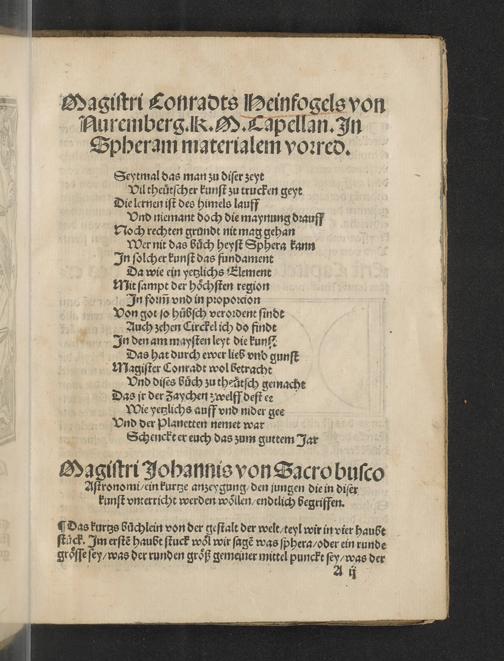 Magistri Conradts Heinfogels von
Nuremberg. K. M. Capellan. In
Spheram materialem vorred.
Seytmal das man zu diser zeyt
Vil theütscher kunst zu trucken geyt
Die lernen ist des himels lauff
Vnd niemant doch die maynung drauff
Noch rechten grundt nit mag gehan
Wer nit das bůch heyst Sphera kann
In solcher kunst das fundament
Da wie ein yetzlichs Element
Mit sampt der höchsten region
In form vnd in proporcion
Von got so hübsch verordent sindt
Auch zehen Circkel ich do findt
In den am maysten leyt die kunst
Das hat durch ewer lieb vnd gunst
Magister Conradt wol betracht
Vnd dises bůch zu theütsch gemacht
Das jr der Zaychen zwelff dest ee
Wie yetzlichs auff vnd nider gee
Vnd der Planetten nemet war
Schenckt er euch das zum guttem Jar
Magistri Johannis von Sacro busco
Astronomi/ein kurtze anzeygung/den jungen die in diser
kunst vnterricht werden wöllen/endtlich begriffen.
¶ Das kurtzs bůchlein von der gestalt der welt/teyl wir in vier haubt
stück. Im erstē haubt stuck wöl wir sagē was sphera/oder ein runde
grösse sey/was der runden größ gemeiner mittel punckt sey/was der
A ij